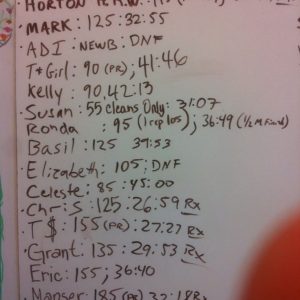 · HORTON
· MARK: 125:32:55
· ADI: NEWB: DNF
T*Girl: 90(PR); 41:46
Kelly: 90,42:13
· Susan: 55 Cleans Only: 31:07
Ronda : 95 (1 rep loss); 36:49 (1/2 M
Basil: 125 39:53
· Elizabeth: 105; DNF
Celeste: 85:45:00
· Chris: 125:26:59 Rx
· T$: 155(PR): 27:27 Rx
· Grant: 135: 29:53 Rx
Eric: 155; 36:40
185(PR)